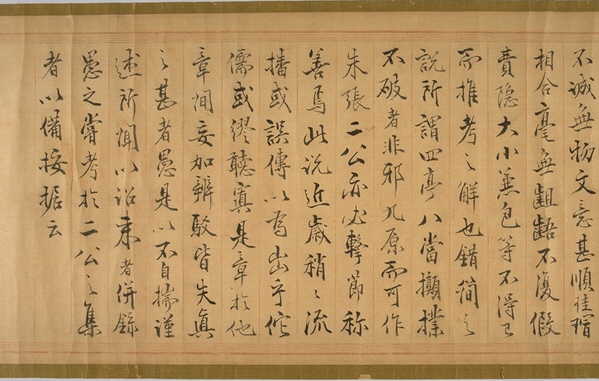 不誠無物文意甚順佳瑁
相合毫無齟齬不復假
費隱大小兼包等不得已
而推考之解也錯簡之
說所謂四亭八當攧撲
不破者非邪九原而可作
朱張二公亦必擊節称
善焉此說近歲稍〻流
播或誤傳以為出乎佗
儒或謬聽寘是章於他
章間妄加辨駁皆失真
之甚者愚是以不自揣謹
述所聞以詒来者併錄
愚之嘗考於二公之集
者以備按据云